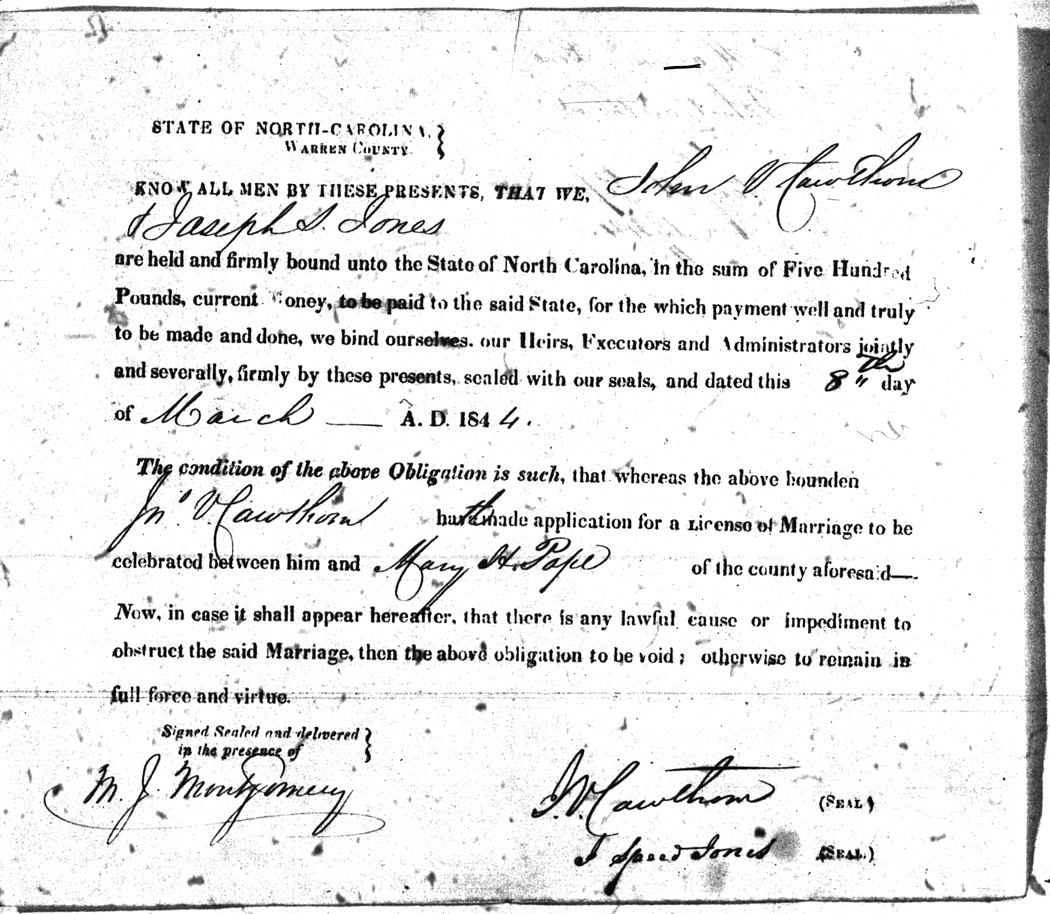 STATE OF NORTH-CAROLINA,
WARREN COUNTY.
KNOW ALL MEN BY THESE PRESENTS, THAT WE, John V Cawthorn
& Joseph S. Jones
are held and firmly bound unto the State of North Carolina, in the sum of Five Hundred
Pounds, current Money, to be paid to the said State, for the which payment well and truly
to be made and done, we bind ourselves. our Heirs, Executors and Administrators jointly
and severally, firmly by these presents, sealed with our seals, and dated this 8th day
of March — A. D. 1844.
The condition of the above Obligation is such, that whereas the above bounden
Jno V Cawthorn hath made application for a License of Marriage to be
celebrated between him and Mary H. Pope of the county aforesaid—.
Now, in case it shall appear hereafter, that there is any lawful cause or impediment to
obstruct the said Marriage, then the above obligation to be void; otherwise to remain in
full force and virtue.
Signed Sealed and delivered
in the presence of
M. J. Montgomery
J. V. Cawthorn (SEAL)
J Speed Jones (SEAL.)